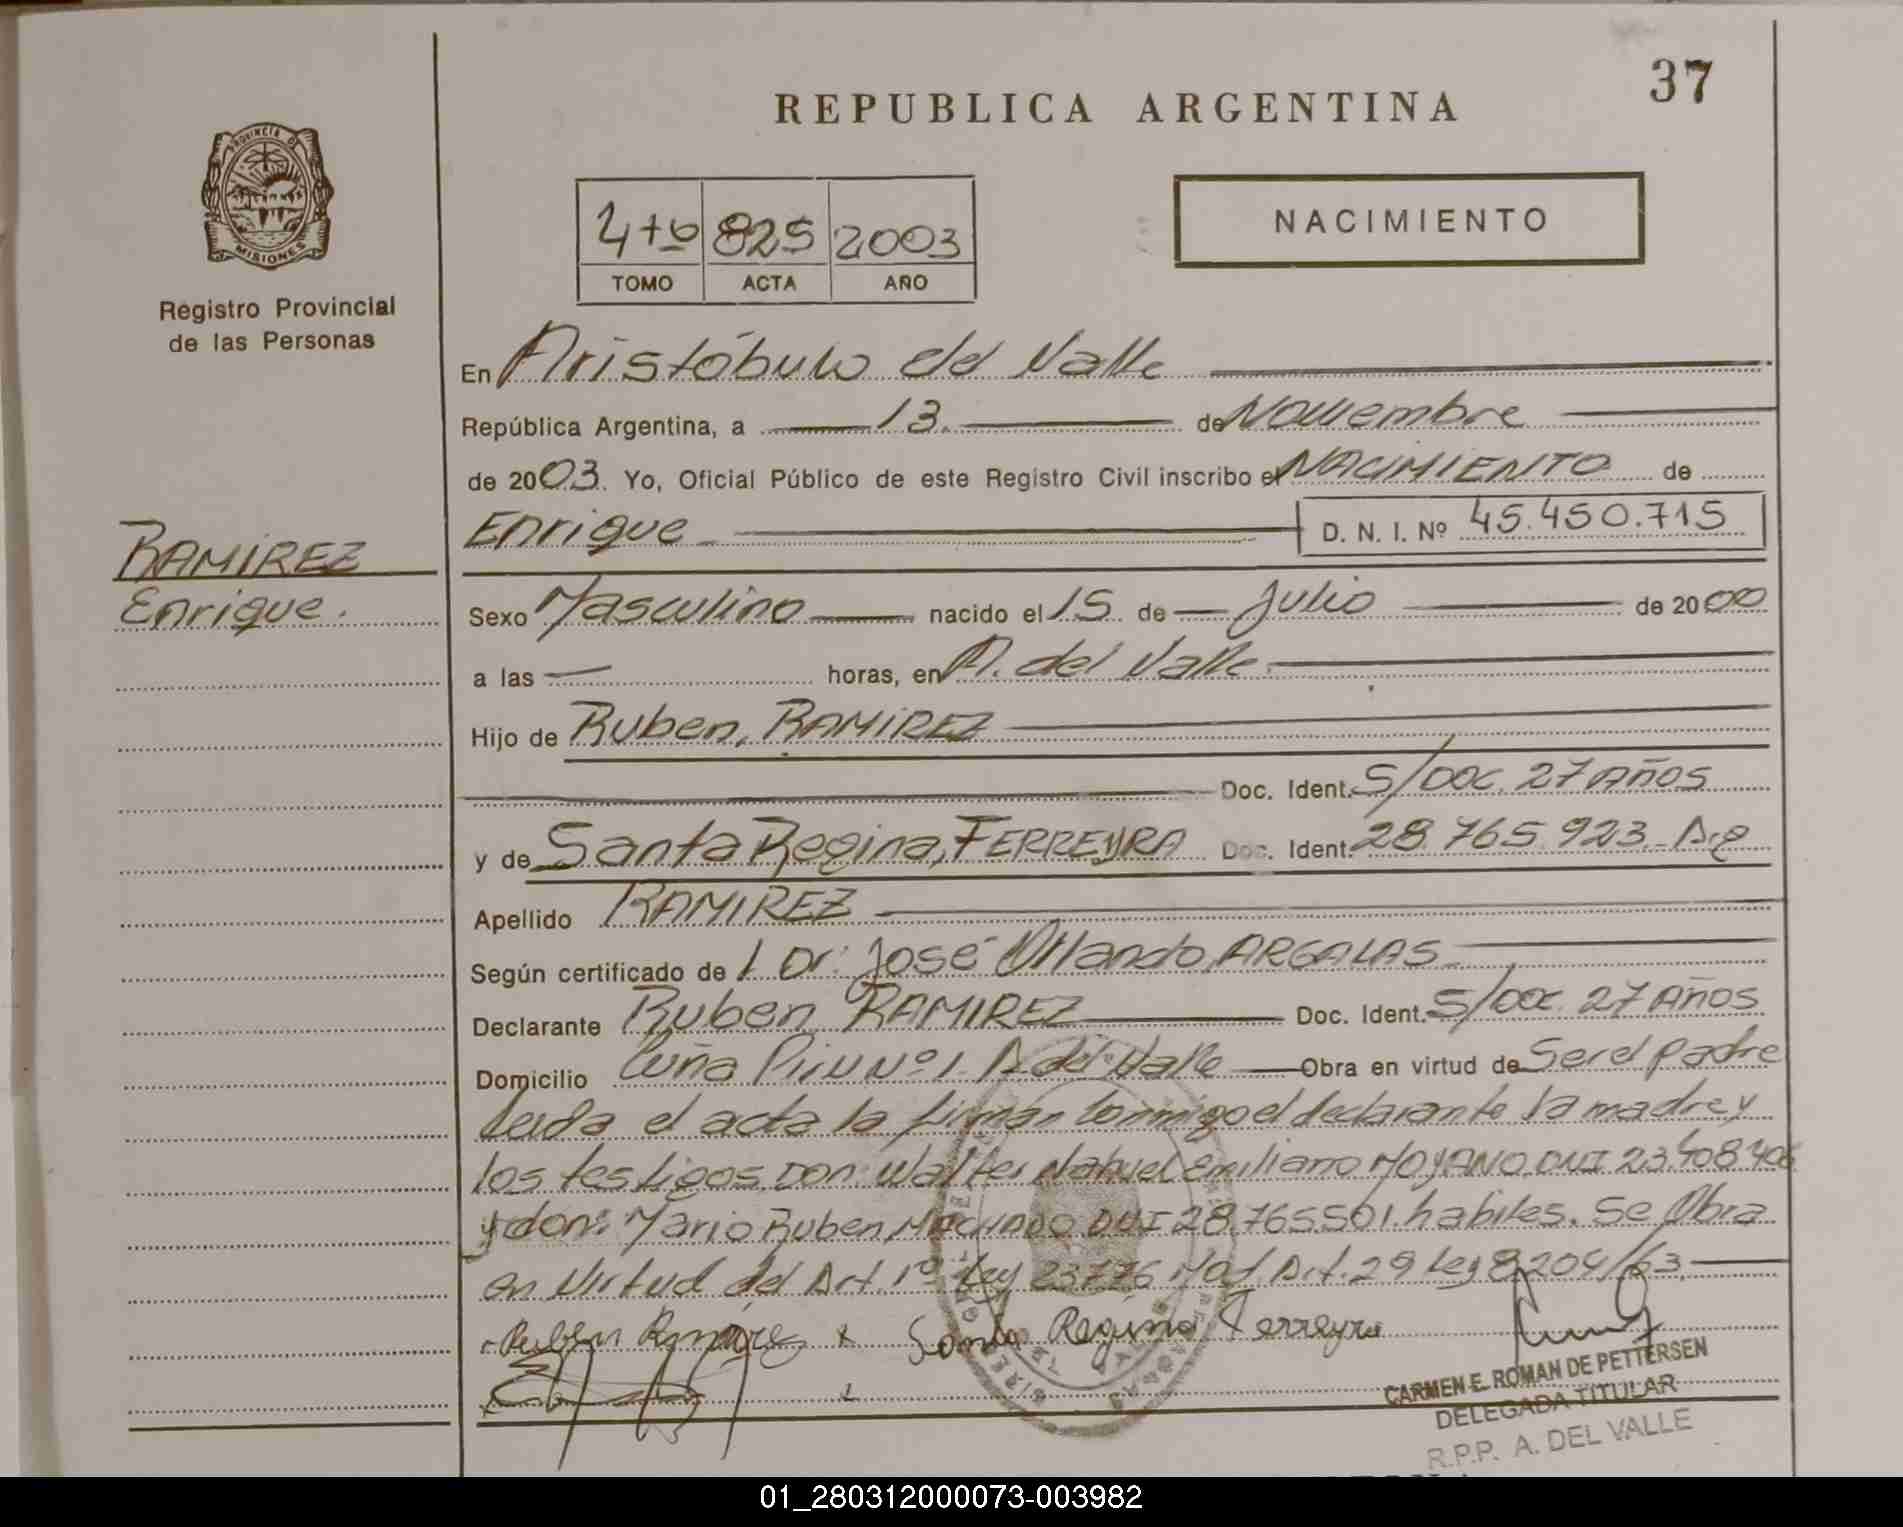 37
REPUBLICA ARGENTINA
PROVINCIA DE
MISIONES
Registro Provincial
de las Personas
4to 825 2003
TOMO ACTA AÑO
NACIMIENTO
En Aristóbulo del Valle
República Argentina, a 13 de Noviembre
de 2003. Yo, Oficial Público de este Registro Civil inscribo el NACIMIENTO de
Enrique D. N. I. Nº 45.450.715
RAMIREZ
Enrique.
Sexo Masculino nacido el 15 de Julio de 2000
a las — horas, en A. del Valle.
Hijo de Ruben, RAMIREZ
Doc. Ident. S/DOC. 27 Años
y de Santa Regina, FERREYRA Doc. Ident. 28.765.923
Apellido RAMIREZ
Según certificado de Dr: José Orlando, ARGALAS
Declarante Ruben RAMIREZ Doc. Ident. S/DOC. 27 Años
Domicilio Cuña Pirú Nº 1. A. del Valle Obra en virtud de Ser el padre
Leida el acta la firman conmigo el declarante la madre y
los testigos Don: Walter Nahuel Emiliano MOYANO DNI 23.408.408
y don: Mario Ruben, MACHADO DNI 28.765501. habiles. Se Obra
en Virtud del Art. 1º Ley 23776 Mod Art. 29 Ley 8204/63.
Ruben Ramires x Santa Regina Ferreyra
CARMEN E. ROMAN DE PETTERSEN
DELEGADA TITULAR
R.P.P. A. DEL VALLE
01_280312000073-003982